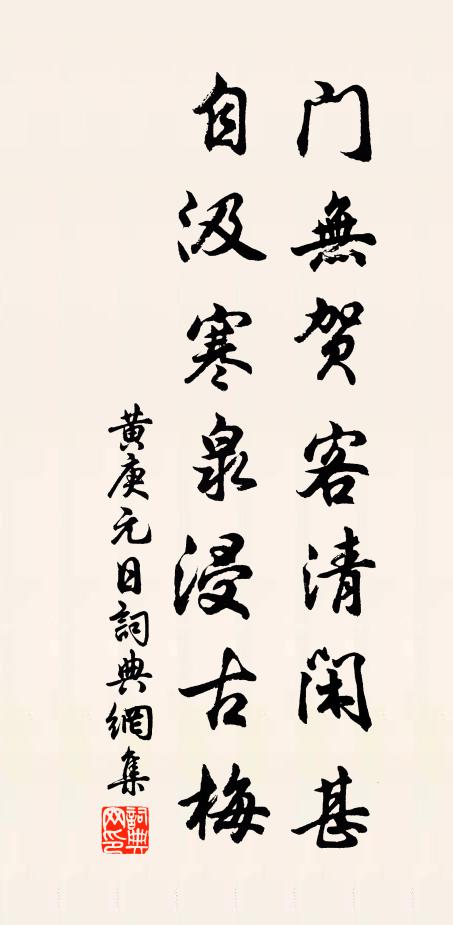 门無贺客清闲甚
自汲寒泉浸古梅
黄庚元日詞典網集
詞典網印